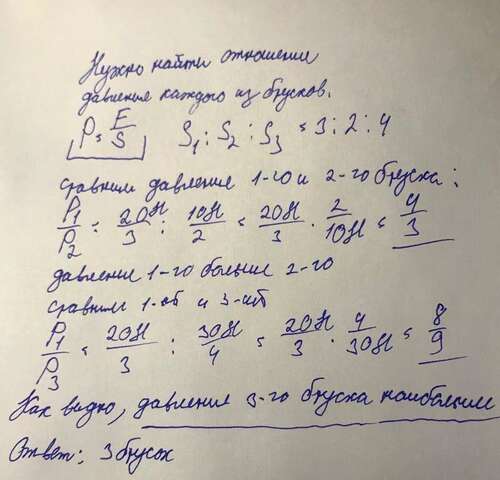 Нужно найти отношение
давления каждого из брусков.
P = F/S   S₁ : S₂ : S₃ = 3 : 2 : 4
сравним давление 1-го и 2-го бруска:
P₁/P₂ = 20Н/3 : 10Н/2 = 20Н/3 · 2/10Н = 4/3
давление 1-го больше 2-го
сравним 1-ый и 3-ий
P₁/P₃ = 20Н/3 : 30Н/4 = 20Н/3 · 4/30Н = 8/9
Как видно, давление 3-го бруска наибольшее
Ответ: 3 брусок